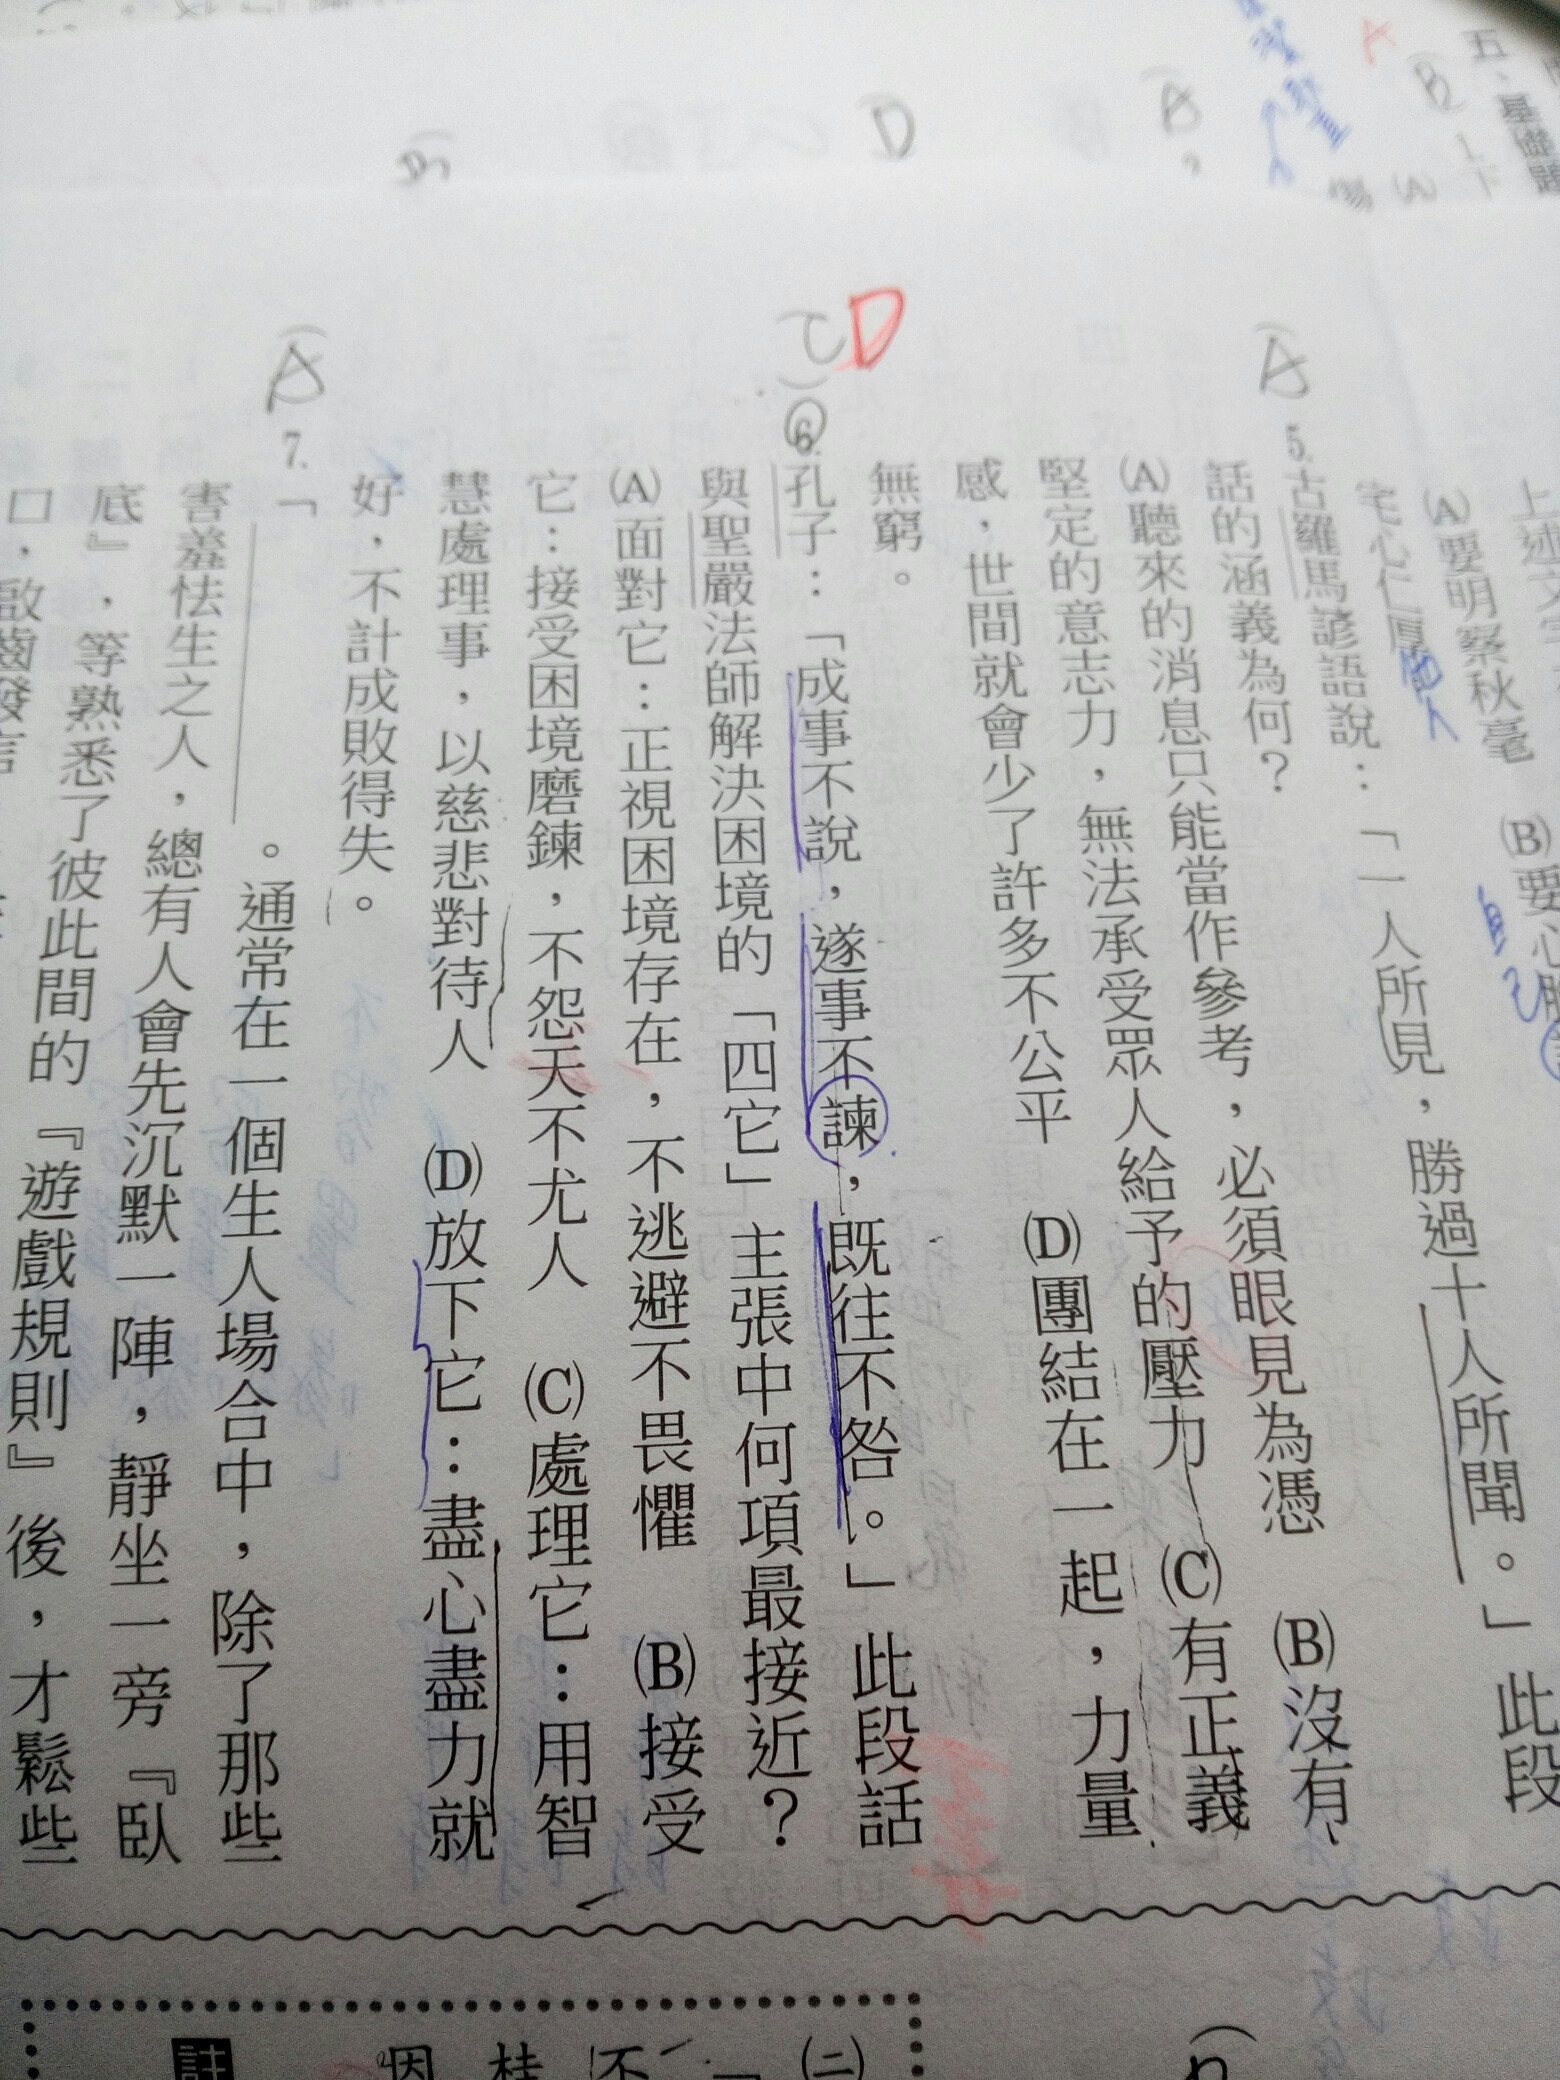 五、基礎題
B
A
1.下
(A)
上述文
(A)要明察秋毫 (B)要心胸
宅心仁厚
他人
自己
A
5.古羅馬諺語說：「一人所見，勝過十人所聞。」此段
話的涵義為何？
(A)聽來的消息只能當作參考，必須眼見為憑 (B)沒有
堅定的意志力，無法承受眾人給予的壓力 (C)有正義
感，世間就會少了許多不公平 (D)團結在一起，力量
無窮。
C D
6.孔子：「成事不說，遂事不諫，既往不咎。」此段話
與聖嚴法師解決困境的「四它」主張中何項最接近？
(A)面對它：正視困境存在，不逃避不畏懼 (B)接受
它：接受困境磨鍊，不怨天不尤人 (C)處理它：用智
慧處理事，以慈悲對待人 (D)放下它：盡心盡力就
好，不計成敗得失。
A
7.「 。通常在一個生人場合中，除了那些
害羞怯生之人，總有人會先沉默一陣，靜坐一旁『臥
底』，等熟悉了彼此間的『遊戲規則』後，才鬆些
口，啟齒發言
A
D
(二)
「不
桂
因
註